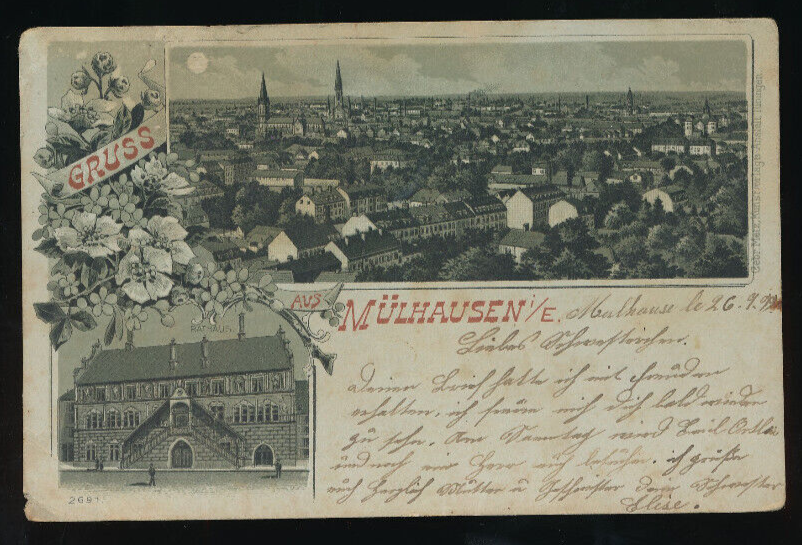 GRUSS
AUS
MÜLHAUSEN i/E.
RATHAUS
2681
Gebr. Metz, Kunst-Verlags-Anstalt Tübingen.
Mulhouse le 26. 9.
Liebes Schwesterchen.
Deinen Brief hatte ich mit Freuden
erhalten, ich freue mich Dich bald wieder
zu sehn. Am Sonntag wird Emil
und noch ein Herr auch besuchen. ich grüße
euch herzlich Mutter u Geschwister deine Schwester
Elise.